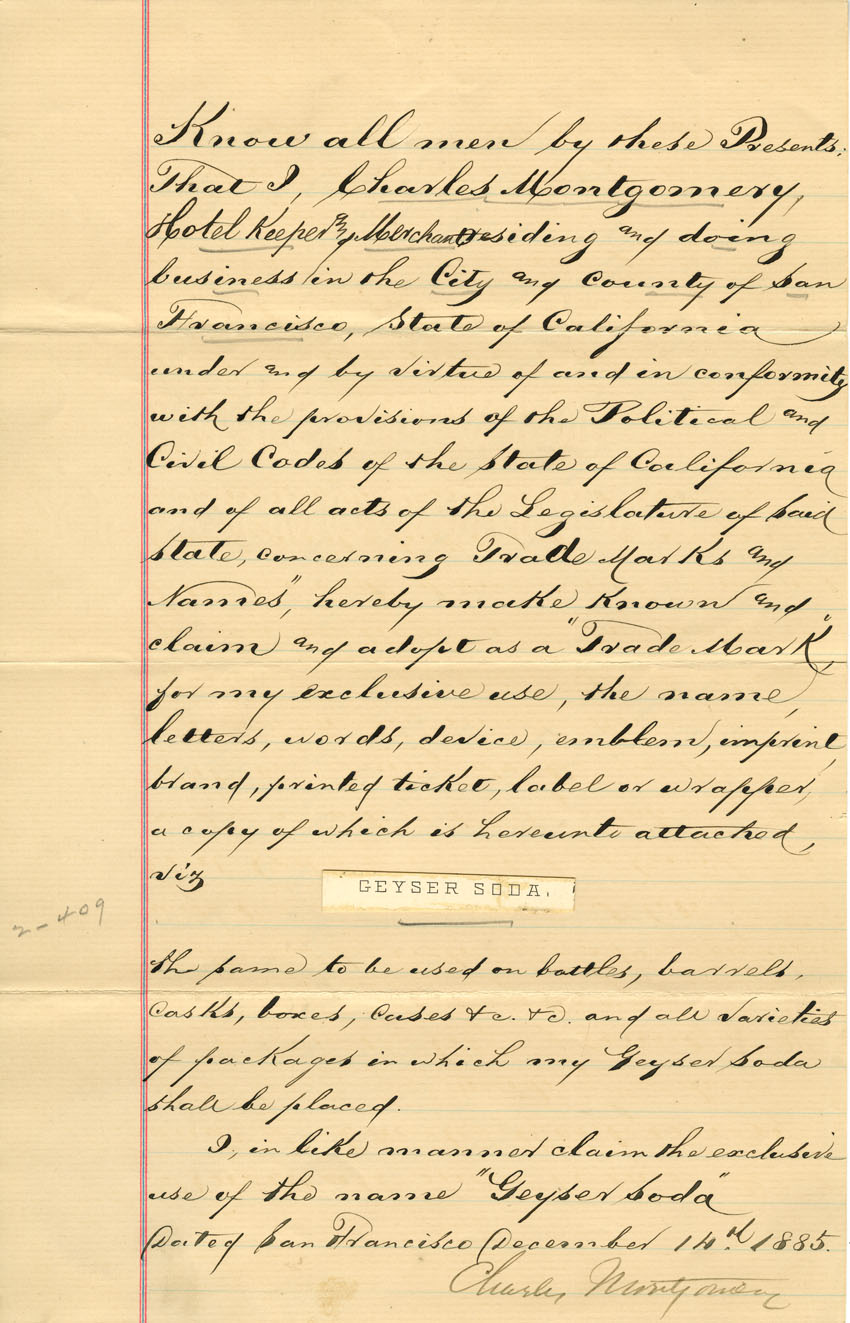 Know all men by these Presents:
That I, Charles Montgomery,
Hotel Keeper and Merchant residing and doing
business in the City and County of San
Francisco, State of California
under and by virtue of and in conformity
with the provisions of the Political and
Civil Codes of the State of California
and of all acts of the Legislature of said
State, concerning Trade Marks and
Names", hereby make known and
claim and adopt as a "Trade Mark",
for my exclusive use, the name,
letters, words, device, emblem, imprint,
brand, printed ticket, label or wrapper,
a copy of which is hereunto attached,
viz
GEYSER SODA.
2-409
the same to be used on bottles, barrels,
casks, boxes, cases &c. &c. and all varieties
of packages in which my Geyser Soda
shall be placed.
I, in like manner claim the exclusive
use of the name "Geyser Soda"
Dated San Francisco December 14th 1885.
Charles Montgomery